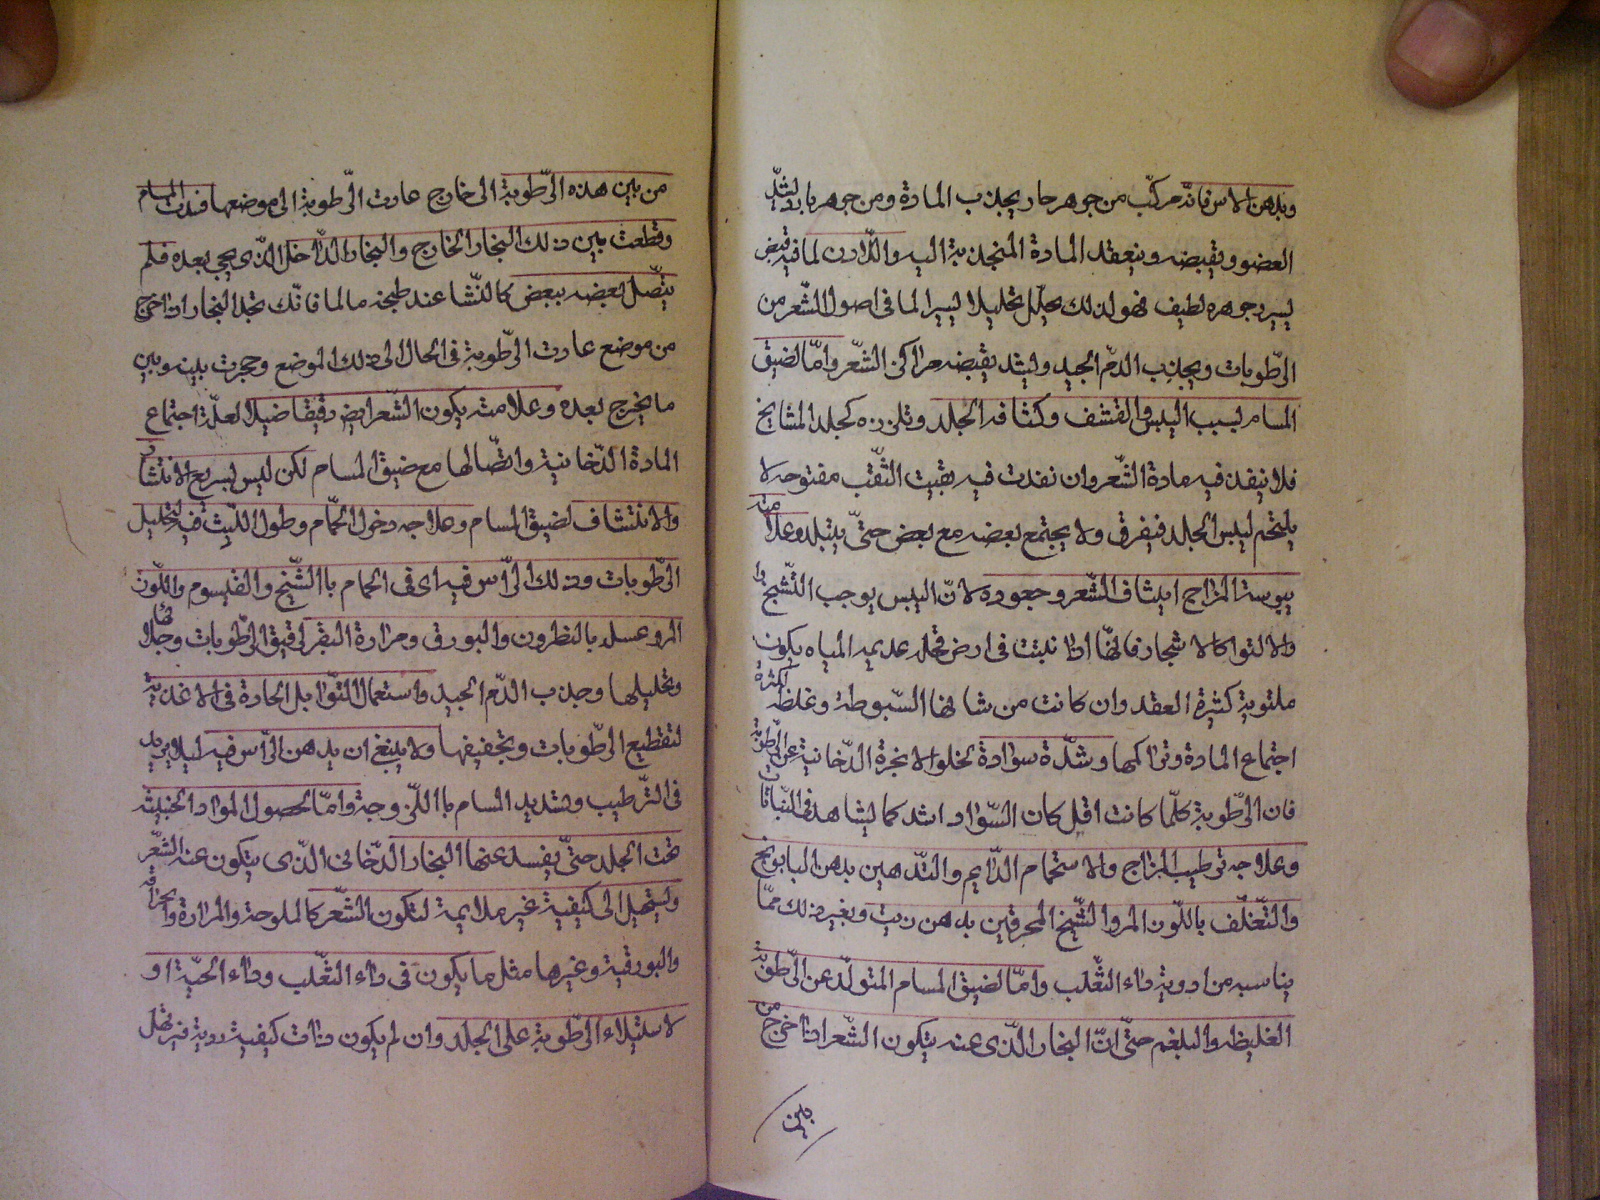 وبدهن الاس فانّه مركّب من جوهر حار يجذب المادة ومن جوهر بارد يشدّ
العضو ويقبضه وينعقد المادة المنجذبة اليه واللّادن لما فيه قبض
يسير وجوهره لطيف فهو لذلك يحلّل تحليلا يسيرا لما فى اصول الشّعر من
الرّطوبات ويجذب الدم الجيد ويشد بقبضه مراكز الشّعر وامّا لضيق
المسام بسبب اليبس والقشف وكثافة الجلد وتلززه كجلد المشايخ
فلا ينفذ فيه مادة الشّعر وان نفذت فيه بقيت الثّقب مفتوحة لا
يلتحم ليبس الجلد فيفرق ولا يجتمع بعضه مع بعض حتّى يتبلد وعلامته
يبوسة المزاج انتشاف الشّعر وجعوده لانّ اليبس يوجب التّشنج وا
والالتوا كالاشجار فانّها اذا نبتت فى ارض قحلة عديمه المياه يكون
ملتوية كثيرة العقد وان كانت من شانها السّبوطة وغلظه لكثرة
اجتماع المادة وتراكمها وشدّة سوادة لخلو الابخرة الدّخانية عن الرّطوبة
فان الرّطوبة كلّما كانت اقل كان السّواد اشد كما يشاهد فى النّباتات
وعلاجه ترطيب المزاج والاستحمام الدّايم والتّدهين بدهن البابونج
والتّغلّف باللّوز المر والشّيخ المحرقين بدهن زيت وبغير ذلك ممّا
يناسبه من ادوية داء الثّعلب وامّا لضيق المسام المتولّد عن الرّطوبة
الغليظه والبلغم حتّى انّ البخار الّذى عنه يتكون الشّعر اذا خرج من
بين
من بين هذه الرّطوبة الى خارج عادت الرّطوبة الى موضعها فسدت المسام
وقطعت بين ذلك البخار الخارج والبخار الدّاخل الذى يجى بعده فلم
يتّصل بعضه ببعض كالنّشا عند طبخه مالما فانّك تجد البخار اذا خرج
من موضع عادت الرّطوبة فى الحال الى ذلك الموضع وحجزت بينه وبين
ما يخرج بعده وعلامته يكون الشّعر ابيض دقيقا ضيلا لعلّة اجتماع
المادة الدّخانية واتّصالها مع ضيق المسام لكن ليس بسريع الانتشار
والانتشاف لضيق المسام وعلاجه دخول الحمّام وطول اللّبث فيه لتحليل
الرّطوبات ودلك الرّاس فيه اى فى الحمام باالشّيخ والقيسوم واللّوز
المر وغسله بالنطرون والبورق ومرارة البقر لرقيق الرّطوبات وجلائها
وتحليلها وجذب الدّم الجيد واستعمال التّوابل الحادة فى الاغذية
لتقطيع الرّطوبات وتجفيفها ولا ينبغ ان يدهن الرّاس فيه ليلا يزيد
فى التّرطيب وتسديد المسام باالّزوجة وامّا لحصول المواد الخبيثه
تحت الجلد حتّى يفسد عنها البخار الدّخانى الذّى يتكون عنه الشّعر
ويستحيل الى كيفية غير ملايمة لتكون الشّعر كالملوحة والمرارة والحرافة
والبورقية وغيرها مثل ما يكون فى داء الثّعلب وداء الحيّة او
لاستيلاء الرّطوبة على الجلد وان لم يكون ذات كيفية ردية فيرهل